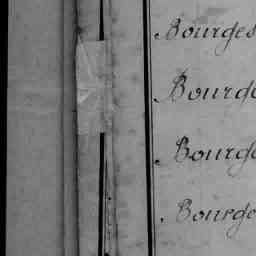 Bourges
Bourg
Bourg
Bourg